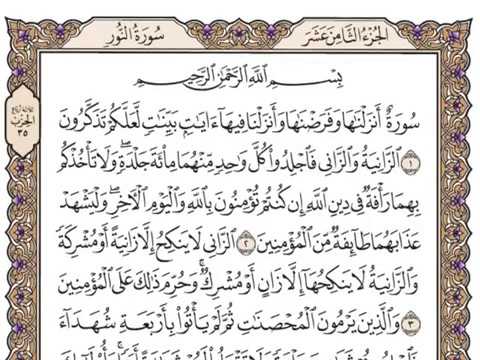 الجُزْءُ الثَّامِنَ عَشَرَ
سُورَةُ النُّورِ
الحِزْبُ
٣٥
بِسْمِ اللَّهِ الرَّحْمَٰنِ الرَّحِيمِ
سُورَةٌ أَنزَلْنَٰهَا وَفَرَضْنَٰهَا وَأَنزَلْنَا فِيهَآ ءَايَٰتٍۭ بَيِّنَٰتٍ لَّعَلَّكُمْ تَذَكَّرُونَ
١ ٱلزَّانِيَةُ وَٱلزَّانِى فَٱجْلِدُوا۟ كُلَّ وَٰحِدٍ مِّنْهُمَا مِا۟ئَةَ جَلْدَةٍ ۖ وَلَا تَأْخُذْكُم
بِهِمَا رَأْفَةٌ فِى دِينِ ٱللَّهِ إِن كُنتُمْ تُؤْمِنُونَ بِٱللَّهِ وَٱلْيَوْمِ ٱلْءَاخِرِ ۖ وَلْيَشْهَدْ
عَذَابَهُمَا طَآئِفَةٌ مِّنَ ٱلْمُؤْمِنِينَ ٢ ٱلزَّانِى لَا يَنكِحُ إِلَّا زَانِيَةً أَوْ مُشْرِكَةً
وَٱلزَّانِيَةُ لَا يَنكِحُهَآ إِلَّا زَانٍ أَوْ مُشْرِكٌ ۚ وَحُرِّمَ ذَٰلِكَ عَلَى ٱلْمُؤْمِنِينَ
٣ وَٱلَّذِينَ يَرْمُونَ ٱلْمُحْصَنَٰتِ ثُمَّ لَمْ يَأْتُوا۟ بِأَرْبَعَةِ شُهَدَآءَ